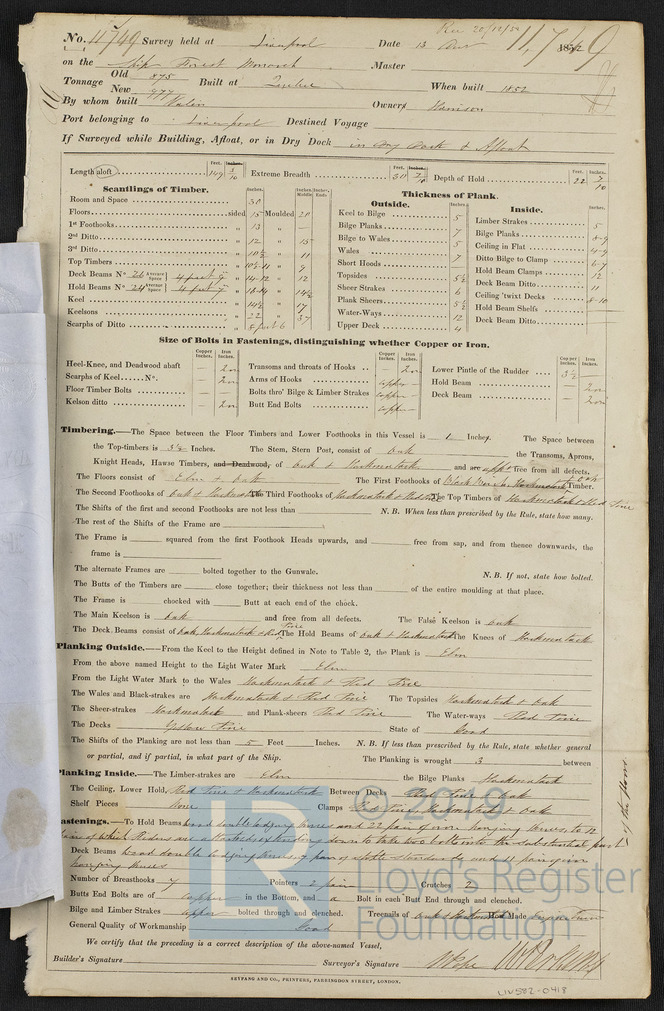 Rec 20/12/52
No. 11749 Survey held at Liverpool Date 13 1852 11749
on the Ship Forest Monarch Master
Tonnage Old 875 New 977 Built at Quebec When built 1852
By whom built Owners Harrison
Port belonging to Liverpool Destined Voyage
If Surveyed while Building, Afloat, or in Dry Dock in Dry Dock & Afloat
Length aloft 149 Feet. Inches. 10 Extreme Breadth 30 Feet. Inches. 10 Depth of Hold 22 Feet. Inches. 7/10
Scantlings of Timber.
Inches. Inches. Middle Inches. Ends
Room and Space 30
Floors sided 15 Moulded 20
1st Foothooks „ 13 „ —
2nd Ditto „ 12 „ 15
3rd Ditto „ 10½ „ 11
Top Timbers „ „ 9
Deck Beams No 26 Average Space 4 feet 9 „ „ 12
Hold Beams No 24 Average Space 4 feet 7 „ „ 14½
Keel „ 14½ „ 17
Keelsons „ 22 „ 37
Scarphs of Ditto 6
Thickness of Plank.
Outside. Inches
Keel to Bilge 5
Bilge Planks 7
Bilge to Wales 5
Wales 7
Short Hoods 7
Topsides 5½
Sheer Strakes 6
Plank Sheers 5½
Water-Ways 12
Upper Deck 4
Inside. Inches.
Limber Strakes 5
Bilge Planks 8-9
Ceiling in Flat
Ditto Bilge to Clamp
Hold Beam Clamps 12
Deck Beam Ditto 11
Ceiling 'twixt Decks 8-10
Hold Beam Shelfs —
Deck Beam Ditto
Size of Bolts in Fastenings, distinguishing whether Copper or Iron.
Copper Inches. Iron Inches.
Heel-Knee, and Deadwood abaft
Scarphs of Keel No.
Floor Timber Bolts —
Kelson ditto —
Copper Inches. Iron Inches.
Transoms and throats of Hooks —
Arms of Hooks copper —
Bolts thro' Bilge & Limber Strakes copper —
Butt End Bolts copper
Copper Inches. Iron Inches.
Lower Pintle of the Rudder 3½ —
Hold Beam —
Deck Beam —
Timbering.—The Space between the Floor Timbers and Lower Foothooks in this Vessel is 1 Inches. The Space between
the Top-timbers is 3½ Inches. The Stem, Stern Post, consist of Oak the Transoms, Aprons,
Knight Heads, Hawse Timbers, and Deadwood, of Oak & Hackmatack and are appr free from all defects.
The Floors consist of Elm & Oak The First Foothooks of Black Birch, Hackmatack & Oak Timber.
The Second Foothooks of Oak & Hackmatack The Third Foothooks of Hackmatack & Red The Top Timbers of Hackmatack & Red Pine
The Shifts of the first and second Foothooks are not less than N. B. When less than prescribed by the Rule, state how many.
The rest of the Shifts of the Frame are
The Frame is squared from the first Foothook Heads upwards, and free from sap, and from thence downwards, the
frame is
The alternate Frames are bolted together to the Gunwale. N. B. If not, state how bolted.
The Butts of the Timbers are close together; their thickness not less than of the entire moulding at that place.
The Frame is chocked with Butt at each end of the chock.
The Main Keelson is Oak and free from all defects. The False Keelson is Oak
The Deck Beams consist of Oak, Hackmatack & Red Pine The Hold Beams of Oak & Hackmatack The Knees of Hackmatack
Planking Outside.—From the Keel to the Height defined in Note to Table 2, the Plank is Elm
From the above named Height to the Light Water Mark Elm
From the Light Water Mark to the Wales Hackmatack & Red Pine
The Wales and Black-strakes are Hackmatack & Red Pine The Topsides Hackmatack & Oak
The Sheer-strakes Hackmatack and Plank-sheers Red Pine The Water-ways Red Pine
The Decks Yellow Pine State of Good
The Shifts of the Planking are not less than 5 Feet Inches. N. B. If less than prescribed by the Rule, state whether general
or partial, and if partial, in what part of the Ship. The Planking is wrought 3 between
Planking Inside.—The Limber-strakes are Elm the Bilge Planks Hackmatack
The Ceiling, Lower Hold, Red Pine & Hackmatack Between Decks Red Pine & Oak
Shelf Pieces None Clamps Red Pine, Hackmatack & Oak
Fastenings.—To Hold Beams broad double lodging knees and 22 pair of iron hanging knees, to 12
pair of which Riders are attached, extending down to take two bolts into the substantial part of the floors.
Deck Beams broad double lodging knees, pair of stple standards and 11 pair iron
hanging knees
Number of Breasthooks 7 Pointers 2 pair Crutches 2
Butts End Bolts are of copper in the Bottom, and a Bolt in each Butt End through and clenched.
Bilge and Limber Strakes copper bolted through and clenched. Treenails of Oak & Hackmatack Made
General Quality of Workmanship Good
We certify that the preceding is a correct description of the above-named Vessel,
Builder's Signature Surveyor's Signature
SEYFANG AND CO., PRINTERS, FARRINGDON STREET, LONDON.
LIV582-0418
LR
© 2019
Lloyd's Register
Foundation